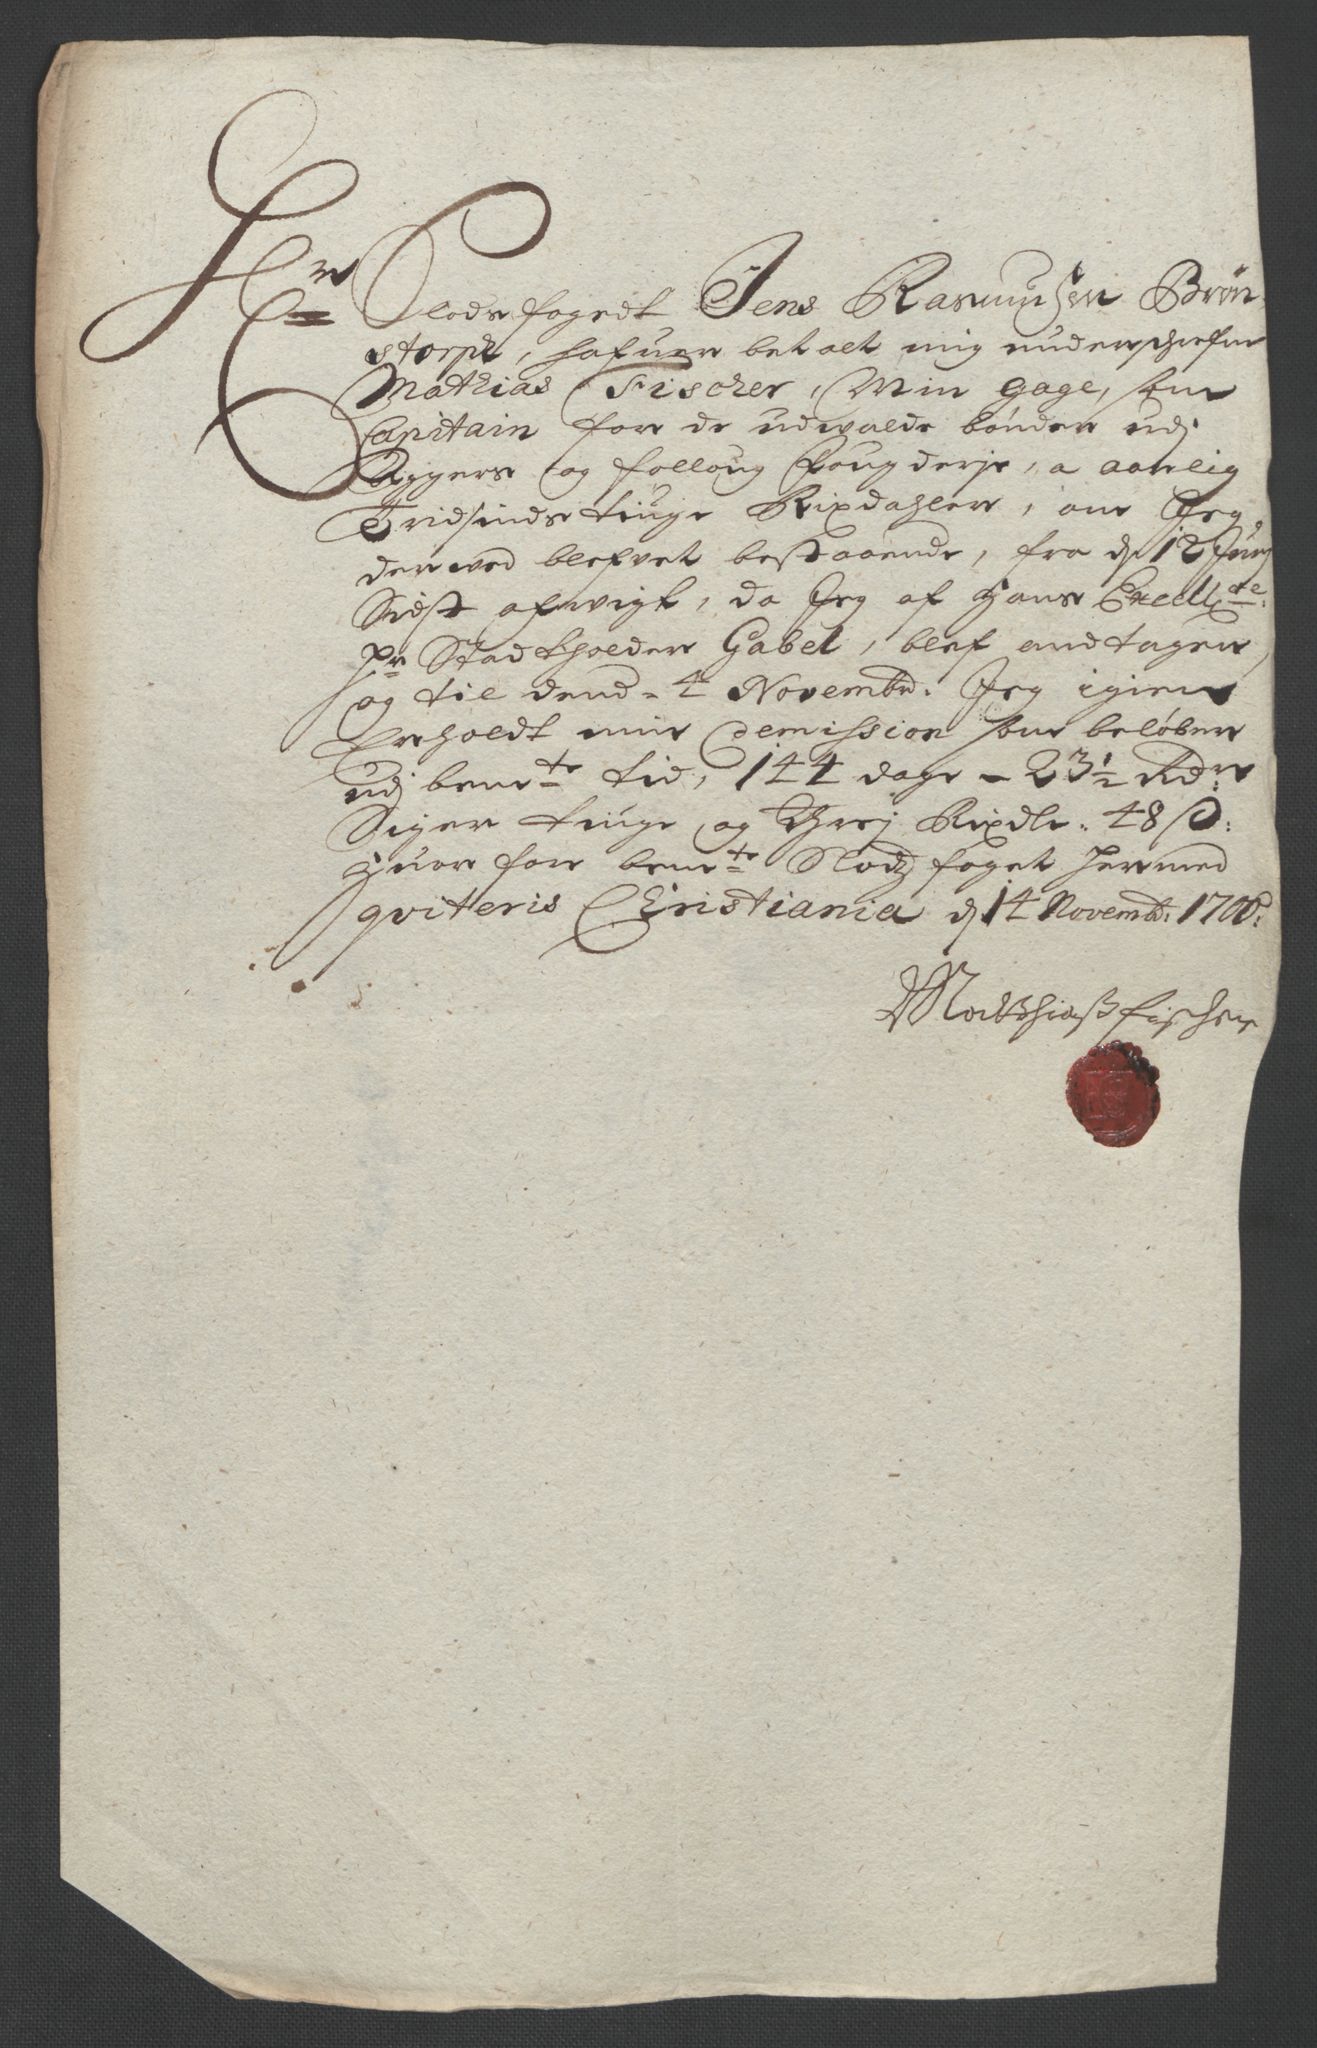 Hr Slodsfogedt Jens Rasmusen Brøn
storph, hafuer betalt mig underschrefne
Mathias Fischer, Min Gage, som
Capitain for de udvalde bønder udj
Aggers og Folloug Fougderje, a aarlig
Tridsindstiuge Rixdahler, om Jeg
derved blefvet bestaaende, fra d 12 Junj
Sidst afvigt, da Jeg af Hans Excellce:
Hr Stadtholder Gabel, blef andtagen,
og til dend 4 Novembr. Jeg igien
Erholdt min Demission som beløber
udj bemte tid, 144 dage - 23½ Rdr
Siger tiuge og Threj Rixdlr. 48 s:
Huor for bemte Slodtz foget hermed
qviteris Christiania d 14 Novembr: 1700.
Matthiaß fischer